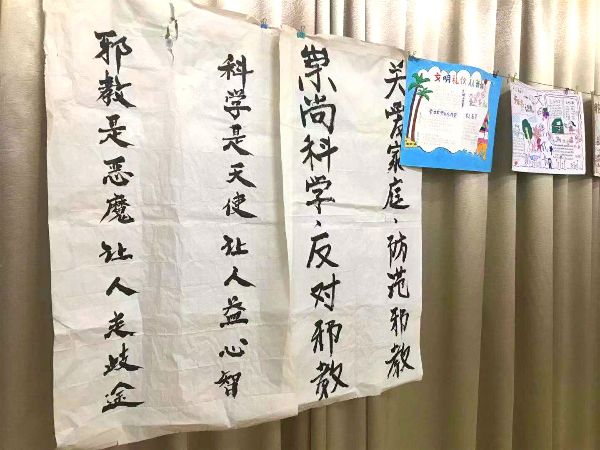 关爱家庭、防范邪教
崇尚科学、反对邪教
科学是天使让人益心智
邪教是恶魔让人走歧途
文明礼仪从我做起